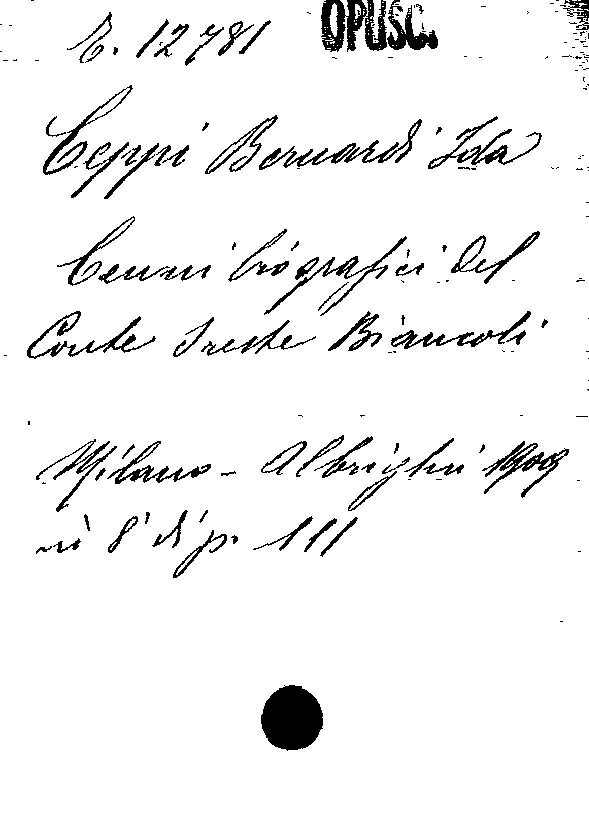 E. 12781 OPUSC.
Ceppi Bernardi Ida
Cenni biografici del
Conte Oreste Biancoli
Milano - Albrighi 1909
in 8° di p. 111